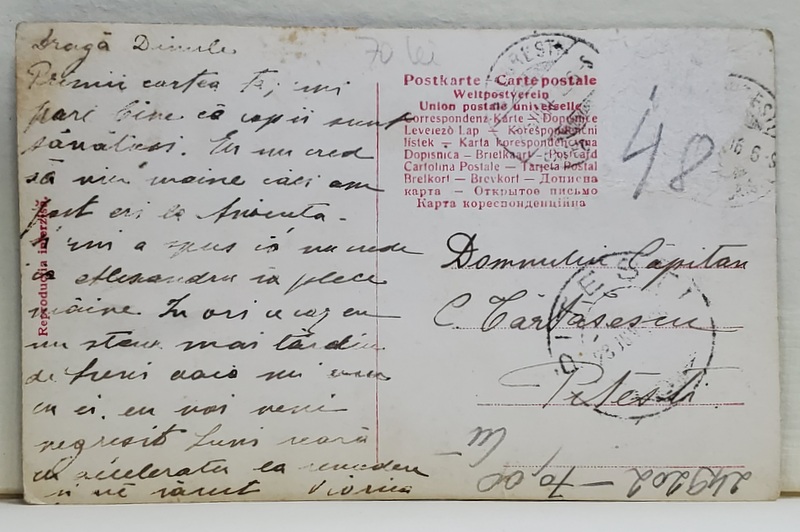 Dragă Dinule
Primii cartea ta, îmi
pare bine că copiii sunt
sănătoși. Eu nu cred
să viu mâine căci am
fost eri la
Și mi a spus că nu crede
că Alexandru să plece
mâine. În ori ce caz eu
nu stau mai târdiu
de Luni
cu ei, eu voi veni
negreșit Luni seară
cu acceleratu la revedere
și vă sărut Viorica
Reproducția interzisă
70 lei
Postkarte - Carte postale
Weltpostverein
Union postale universelle
Correspondenz-Karte - Dopisnice
Levelező Lap - Korešpondenční
lístek - Karta korespondencyjna
Dopisnica - Brielkaart - Postcard
Cartolina Postale - Tarjeta Postal
Brefkort - Brevkort - Дописна
карта - Открытое письмо
Карта кореспонденційна
48
Domnului Căpitan
C. Tărtășescu
Pitești
PITEȘTI
249202 - 70,00